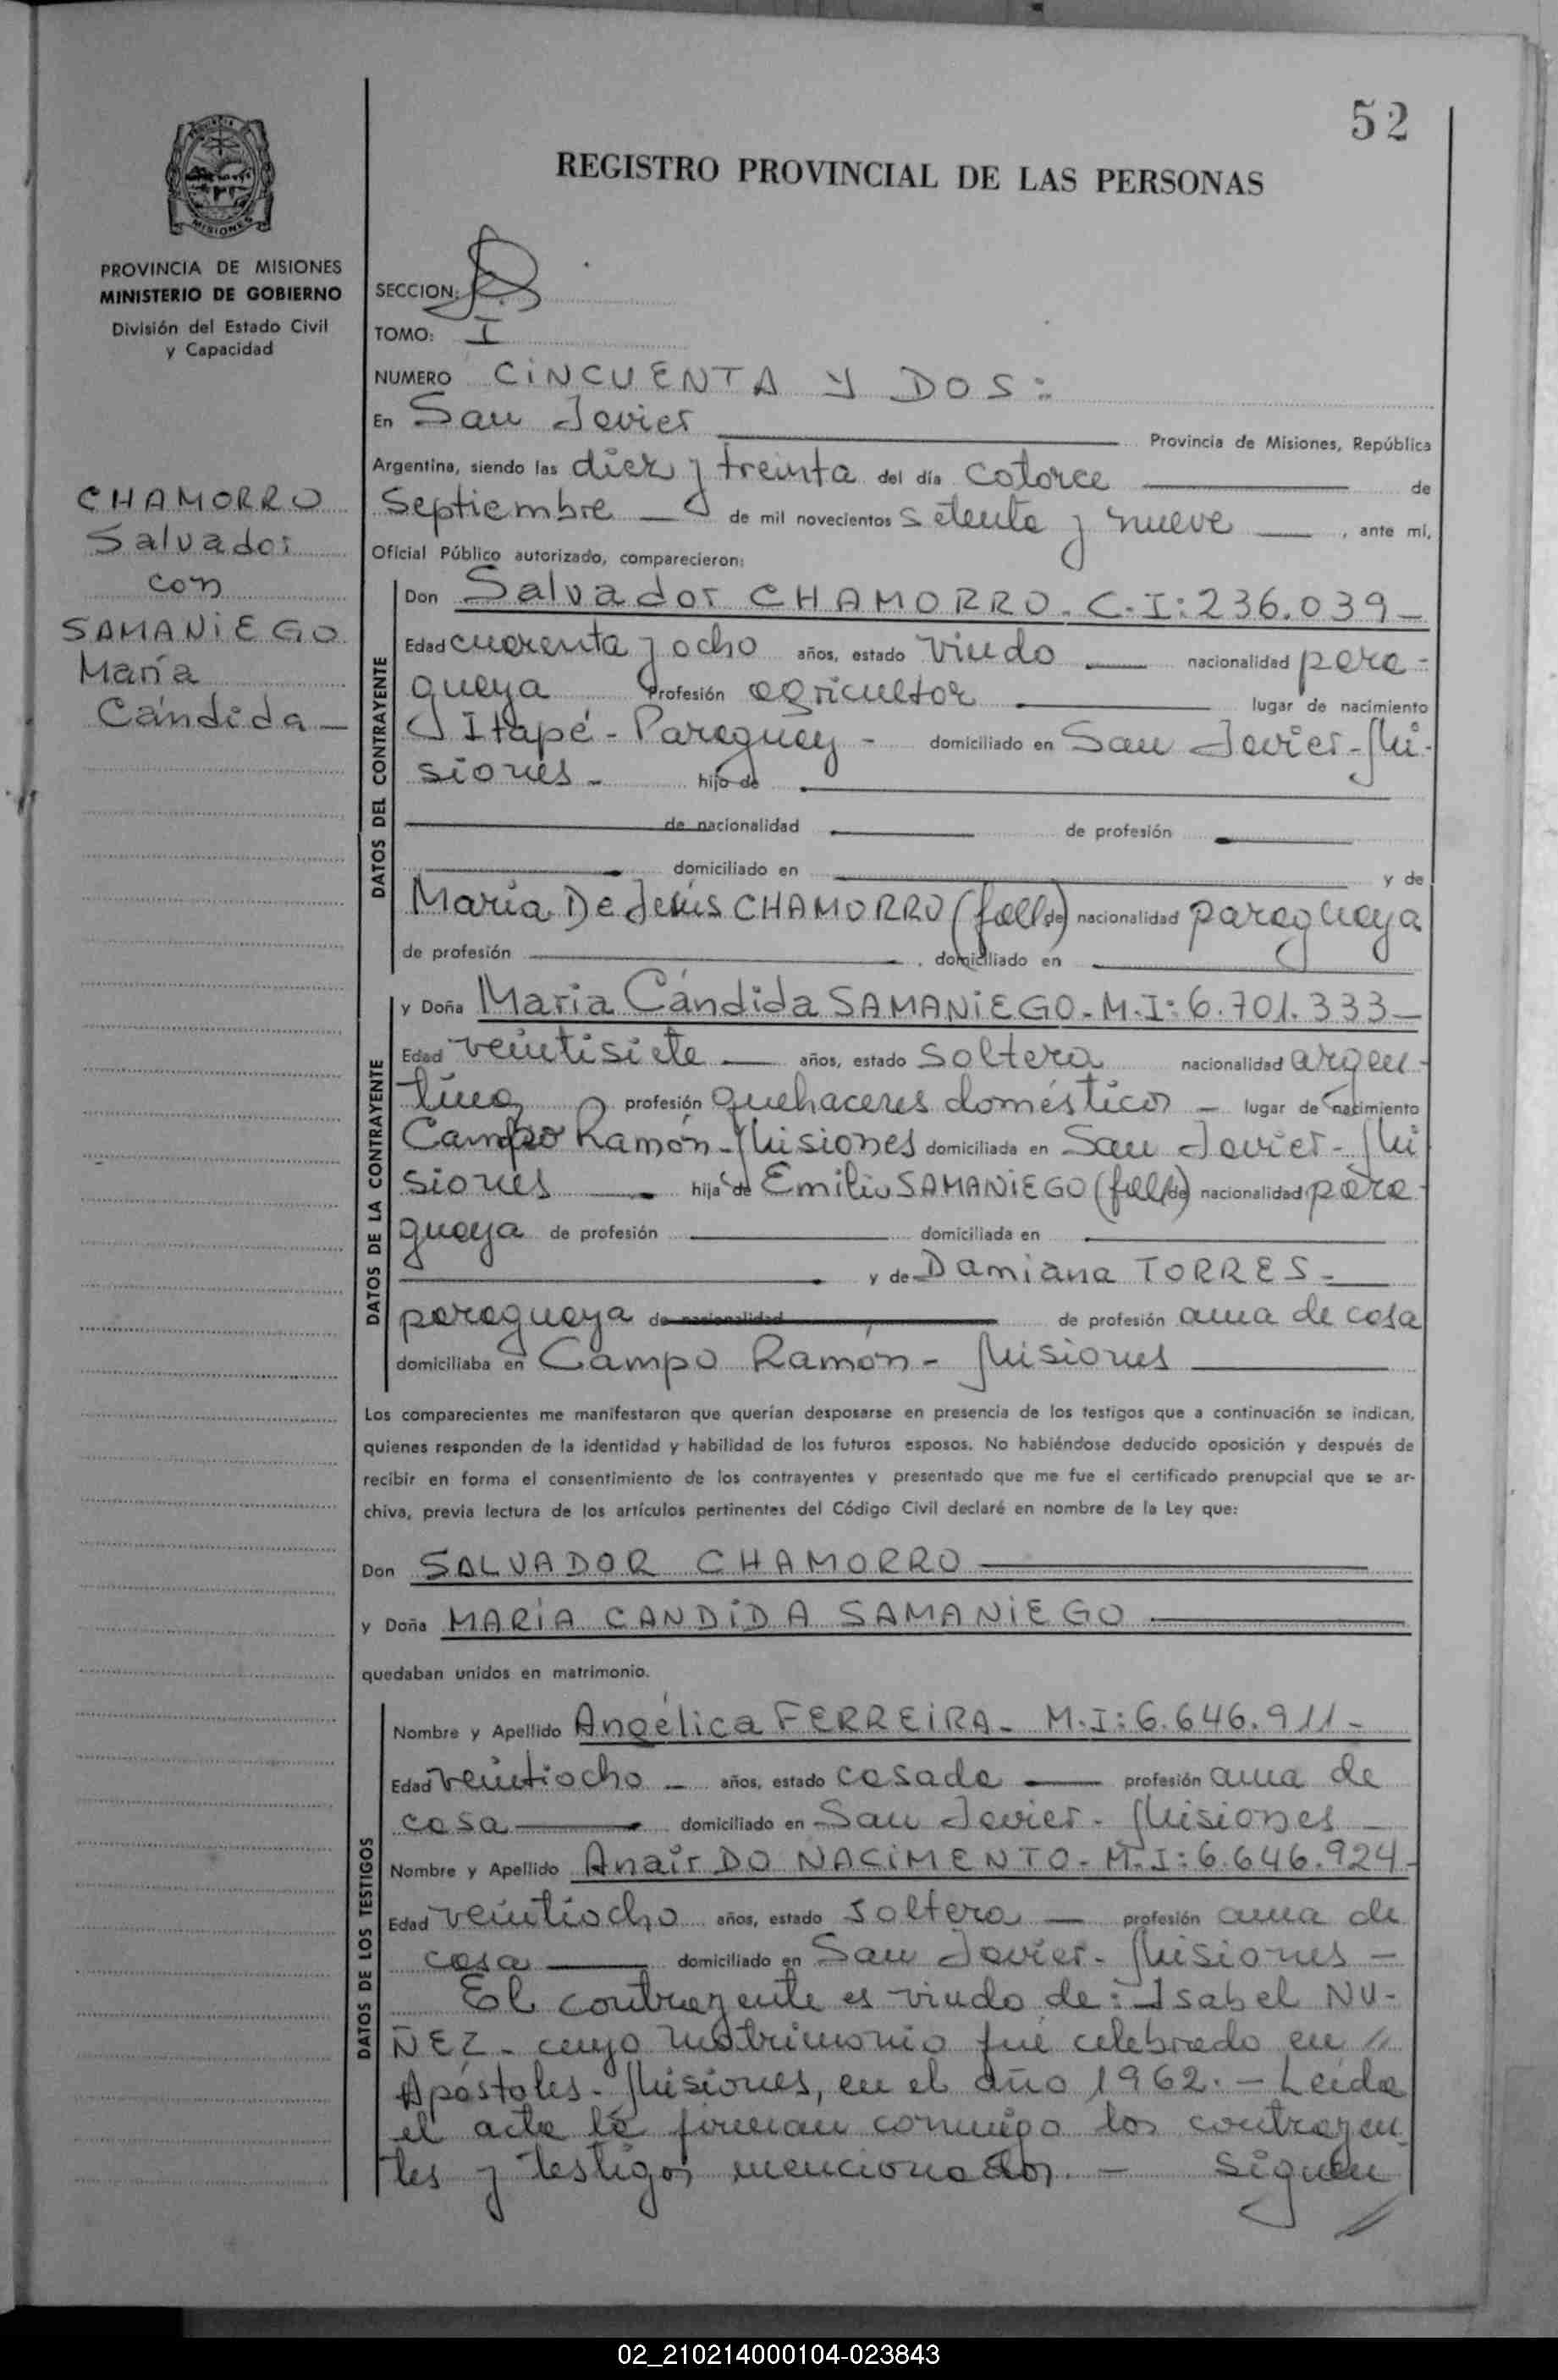 52
REGISTRO PROVINCIAL DE LAS PERSONAS
PROVINCIA
MISIONES
PROVINCIA DE MISIONES
MINISTERIO DE GOBIERNO
División del Estado Civil
y Capacidad
CHAMORRO
Salvador
con
SAMANIEGO
María
Cándida -
SECCION:
TOMO: I
NUMERO CINCUENTA Y DOS:
En San Javier Provincia de Misiones, República
Argentina, siendo las diez y treinta del día catorce de
Septiembre de mil novecientos setenta y nueve, ante mí,
Oficial Público autorizado, comparecieron:
DATOS DEL CONTRAYENTE
Don Salvador CHAMORRO. C.I: 236.039 -
Edad cuarenta y ocho años, estado viudo nacionalidad para-
guaya Profesión agricultor lugar de nacimiento
Itapé - Paraguay - domiciliado en San Javier - Mi-
siones - hijo de
de nacionalidad de profesión
domiciliado en y de
María De Jesús CHAMORRO (fall) de nacionalidad paraguaya
de profesión , domiciliado en
DATOS DE LA CONTRAYENTE
y Doña María Cándida SAMANIEGO - M.I: 6.701.333 -
Edad veintisiete años, estado soltera nacionalidad argen-
tina profesión quehaceres domésticos - lugar de nacimiento
Campo Ramón - Misiones domiciliada en San Javier - Mi
siones hija de Emilio SAMANIEGO (fall) de nacionalidad para-
guaya de profesión domiciliada en
y de Damiana TORRES -
paraguaya de nacionalidad de profesión ama de casa
domiciliaba en Campo Ramón - Misiones
Los comparecientes me manifestaron que querían desposarse en presencia de los testigos que a continuación se indican,
quienes responden de la identidad y habilidad de los futuros esposos. No habiéndose deducido oposición y después de
recibir en forma el consentimiento de los contrayentes y presentado que me fue el certificado prenupcial que se ar-
chiva, previa lectura de los artículos pertinentes del Código Civil declaré en nombre de la Ley que:
Don SALVADOR CHAMORRO
y Doña MARIA CANDIDA SAMANIEGO
quedaban unidos en matrimonio.
DATOS DE LOS TESTIGOS
Nombre y Apellido Angélica FERREIRA - M.I: 6.646.911 -
Edad veintiocho - años, estado casada profesión ama de
casa domiciliado en San Javier - Misiones
Nombre y Apellido Anair DO NACIMENTO - M.I: 6.646.924 -
Edad veintiocho años, estado soltera - profesión ama de
casa domiciliado en San Javier - Misiones -
El contrayente es viudo de: Isabel NU-
ÑEZ - cuyo matrimonio fué celebrado en //
Apóstoles - Misiones, en el año 1962. - Leída
el acta la firman conmigo los contrayen-
tes y testigos mencionados. - Siguen
//
02_210214000104-023843